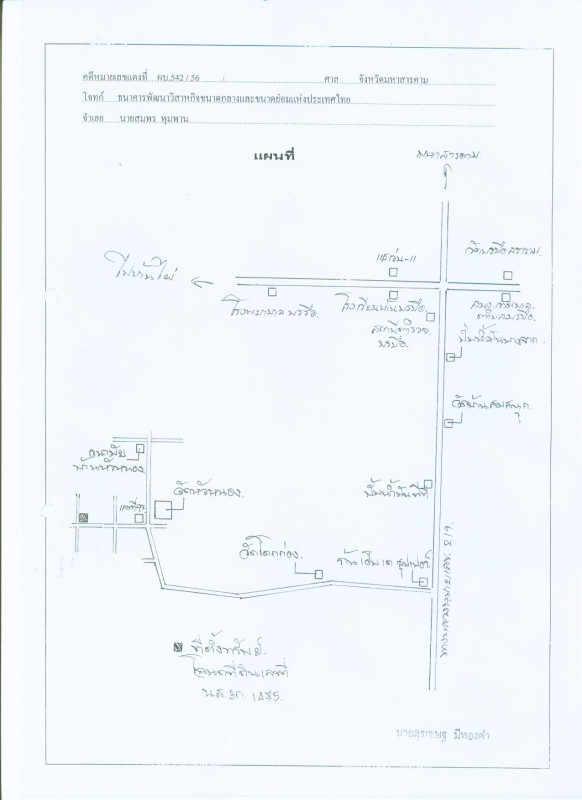 คดีหมายเลขแดงที่ ผบ.542 / 56 / ศาล จังหวัดมหาสารคาม
โจทก์ ธนาคารพัฒนาวิสาหกิจขนาดกลางและขนาดย่อมแห่งประเทศไทย
จำเลย นายสมพร พุมพาน
แผนที่
มหาสารคาม
ไปบ้านไผ่
เซเว่น-11
วัดบรบือสราราม
โรงพยาบาลบรบือ
โรงเรียนบ้านบรบือ
สถานีตำรวจ
บรบือ
สนง.เทศบาล
ตำบลบรบือ
ปั๊มน้ำมันบางจาก
อนามัย
บ้านหัวหนอง
วัดหัวหนอง
ปั๊มน้ำมันพีที
วัดโคกก่อง
ที่ตั้งทรัพย์
โฉนดที่ดินเลขที่
น.ส.3ก.
นายสุรเชษฐ มีทองคำ